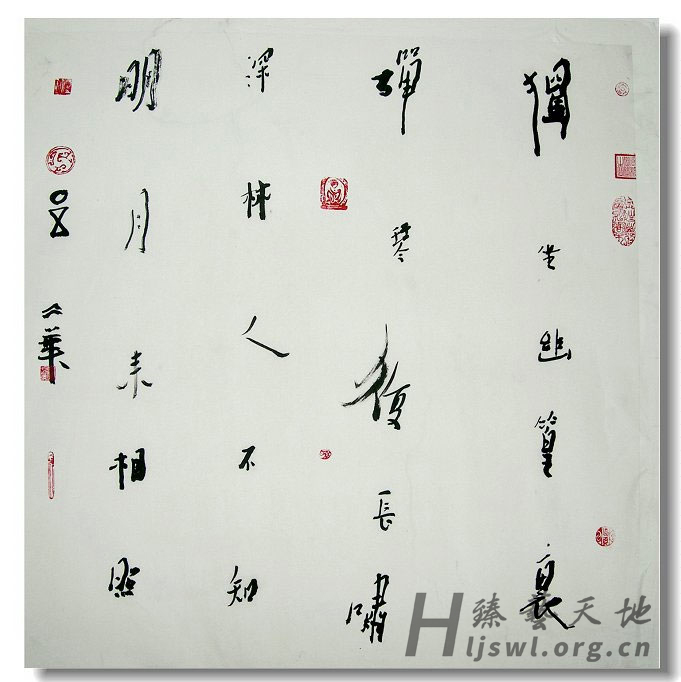 獨坐幽篁裏
彈琴復長嘯
深林人不知
明月来相照
華
臻藝天地
Hljswl.org.cn